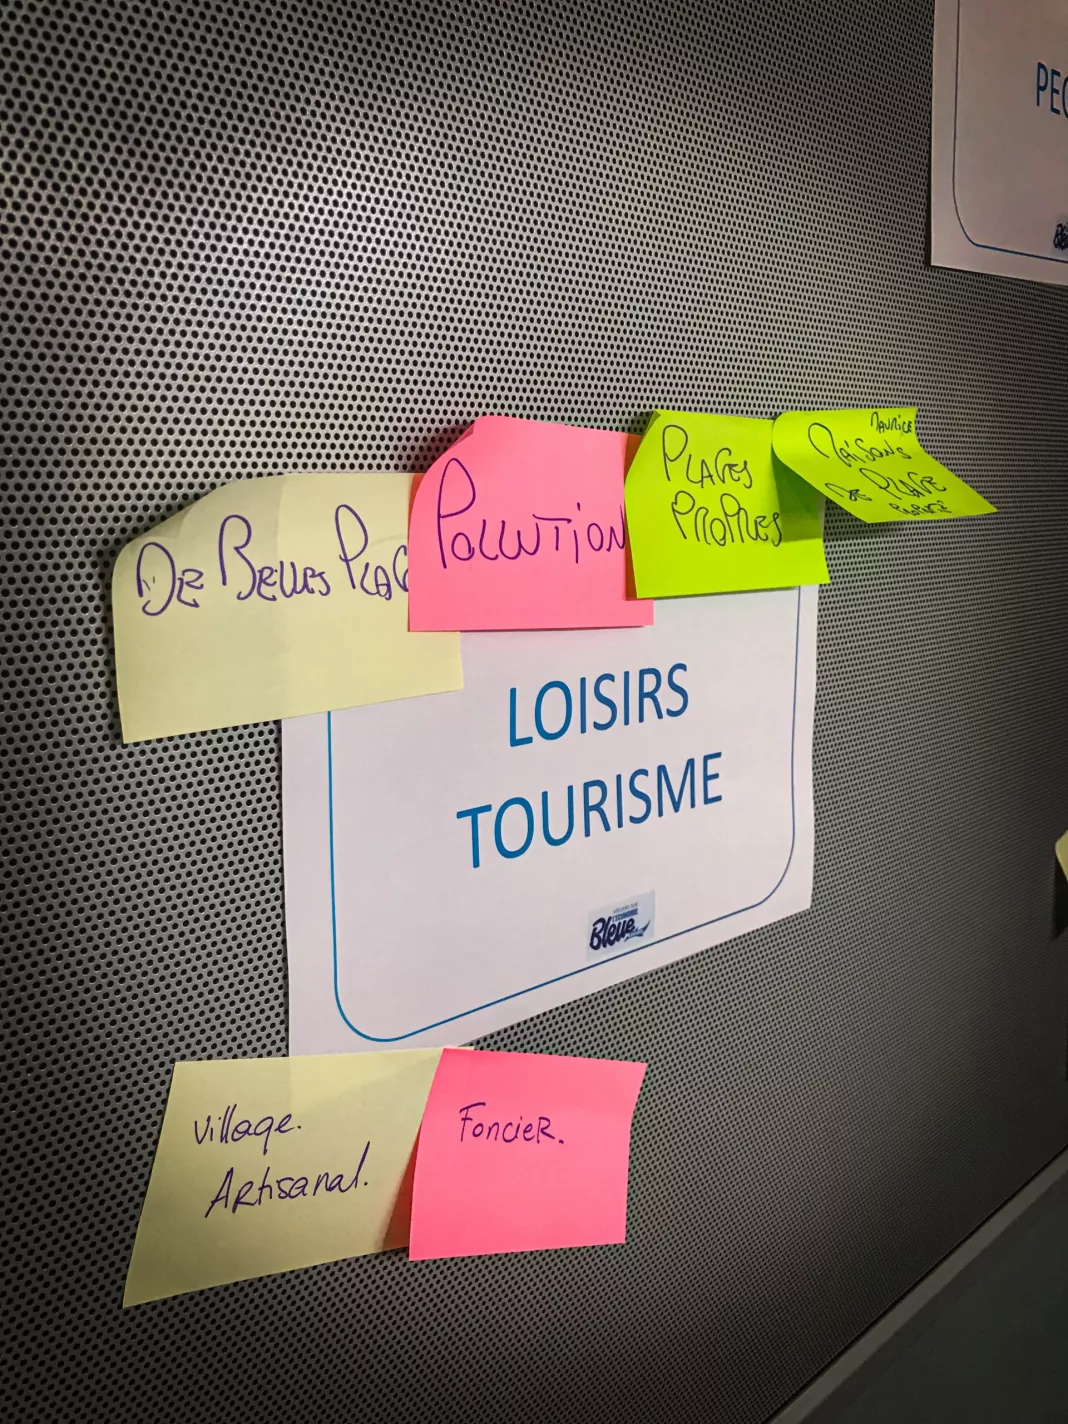 PEC
DE BELLES PLAG
POLLUTION
PLAGES
PROPRES
MAURICE
MAISONS
DE PLAGE
LOISIRS
TOURISME
L'ECONOMIE
Bleue
Village.
Artisanal.
FoncieR.